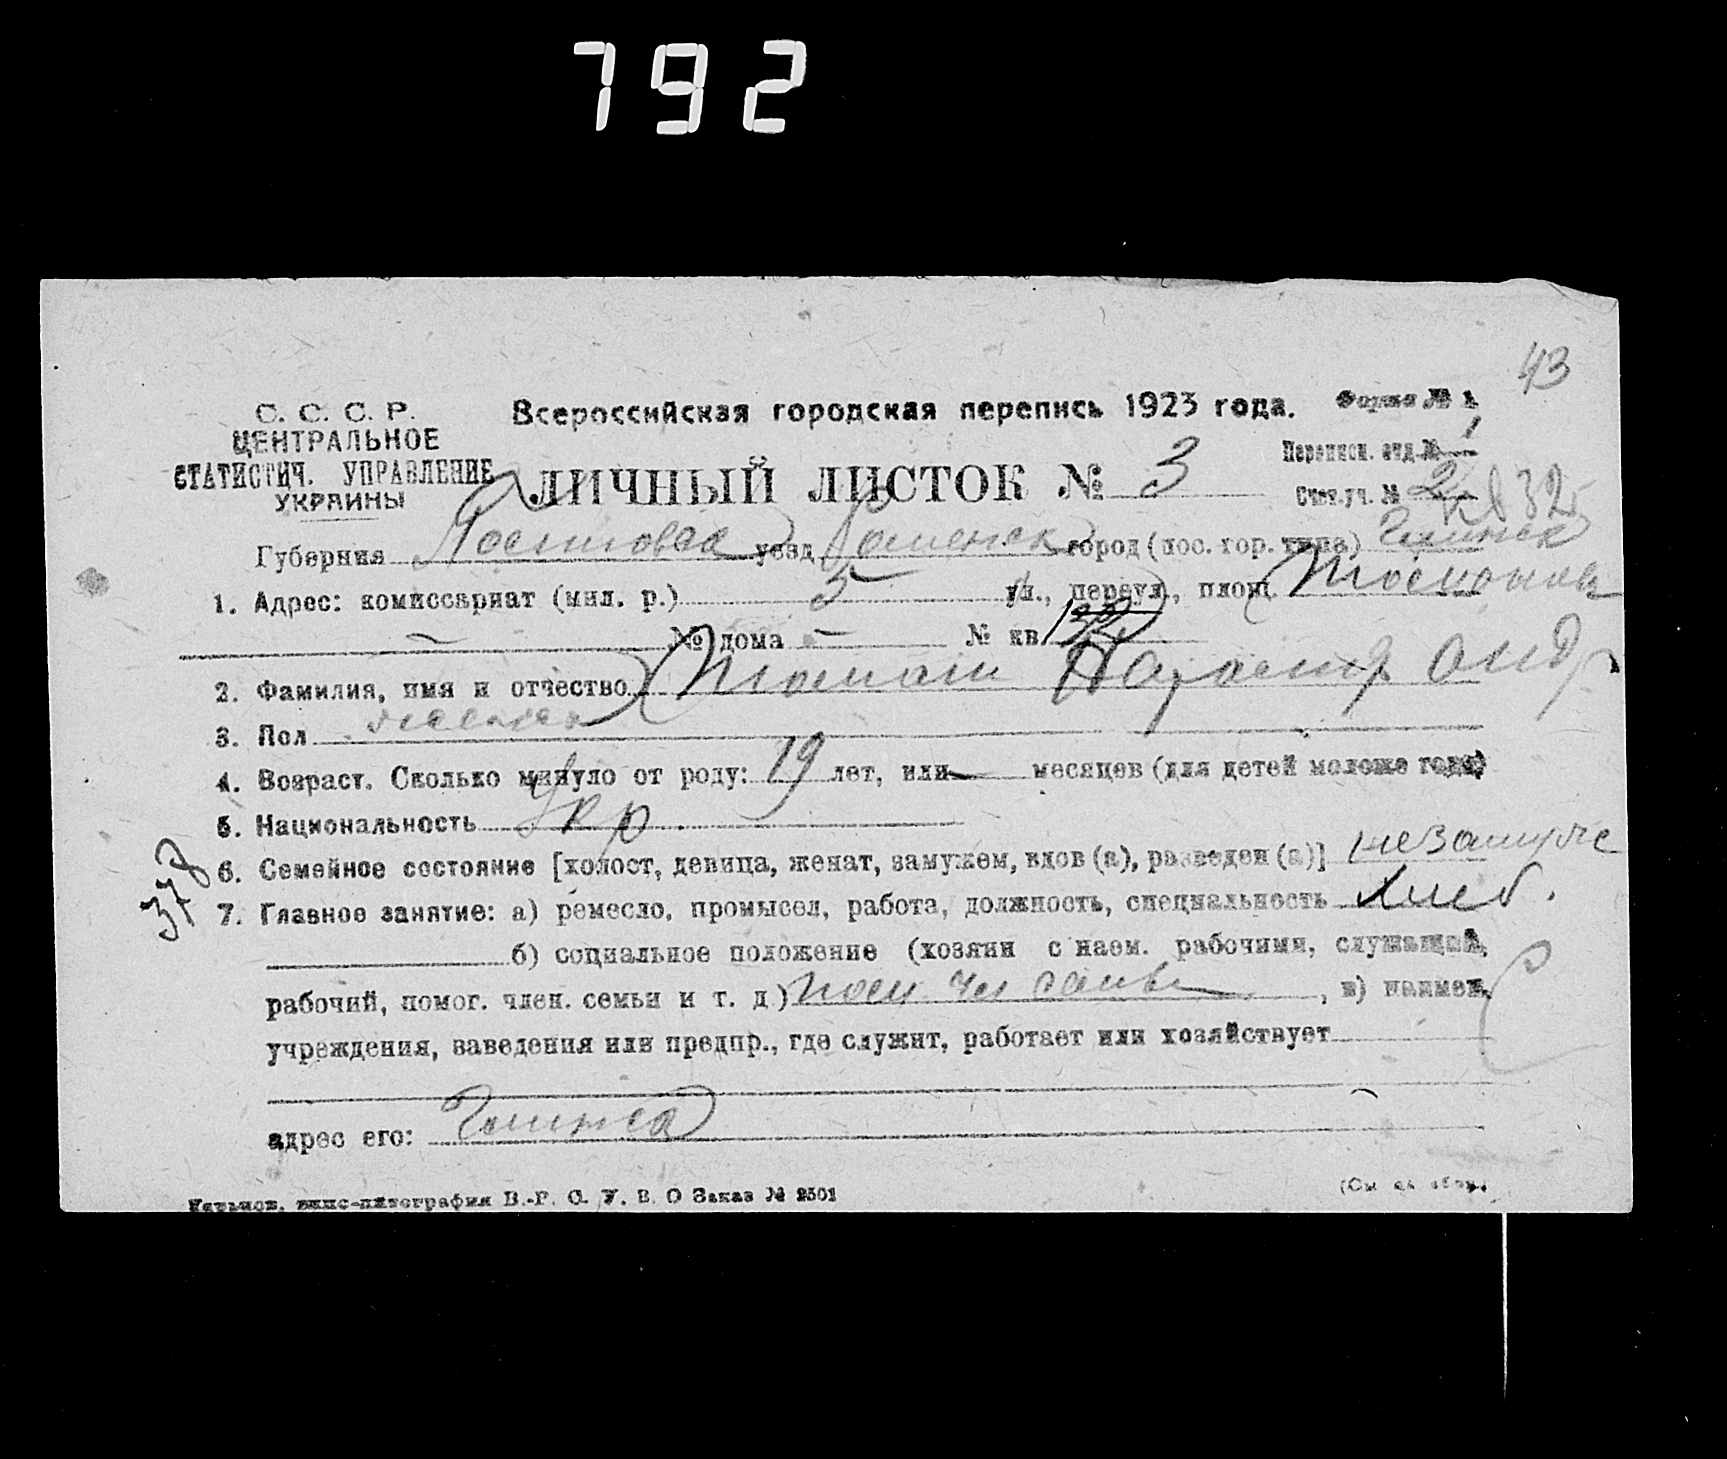 792
43
С. С. С. Р.
ЦЕНТРАЛЬНОЕ
СТАТИСТИЧ. УПРАВЛЕНИЕ
УКРАИНЫ
Всероссийская городская перепись 1923 года.
Форма № 1
ЛИЧНЫЙ ЛИСТОК № 3
Переписн. отд. № 1
Счет. уч. № 2
Губерния уезд Роменск город (пос. гор. типа) Глинск
1. Адрес: комиссариат (мил. р.) 5 ул., переул., площ.
— № дома — № кв
2. Фамилия, имя и отчество
3. Пол
4. Возраст. Сколько минуло от роду: 19 лет, или — месяцев (для детей моложе года)
5. Национальность Укр
378
6. Семейное состояние [холост, девица, женат, замужем, вдов (а), разведен (а)] незамуже
7. Главное занятие: а) ремесло, промысел, работа, должность, специальность Хлеб.
б) социальное положение (хозяин с наем. рабочими, служащий,
рабочий, помог. член. семьи и т. д.) пом. чл семьи, в) наимен.
учреждения, заведения или предпр., где служит, работает или хозяйствует
адрес его: Глинск
типо-литография В.-Р. С. У. В. О Заказ № 2501
(См на обор.)